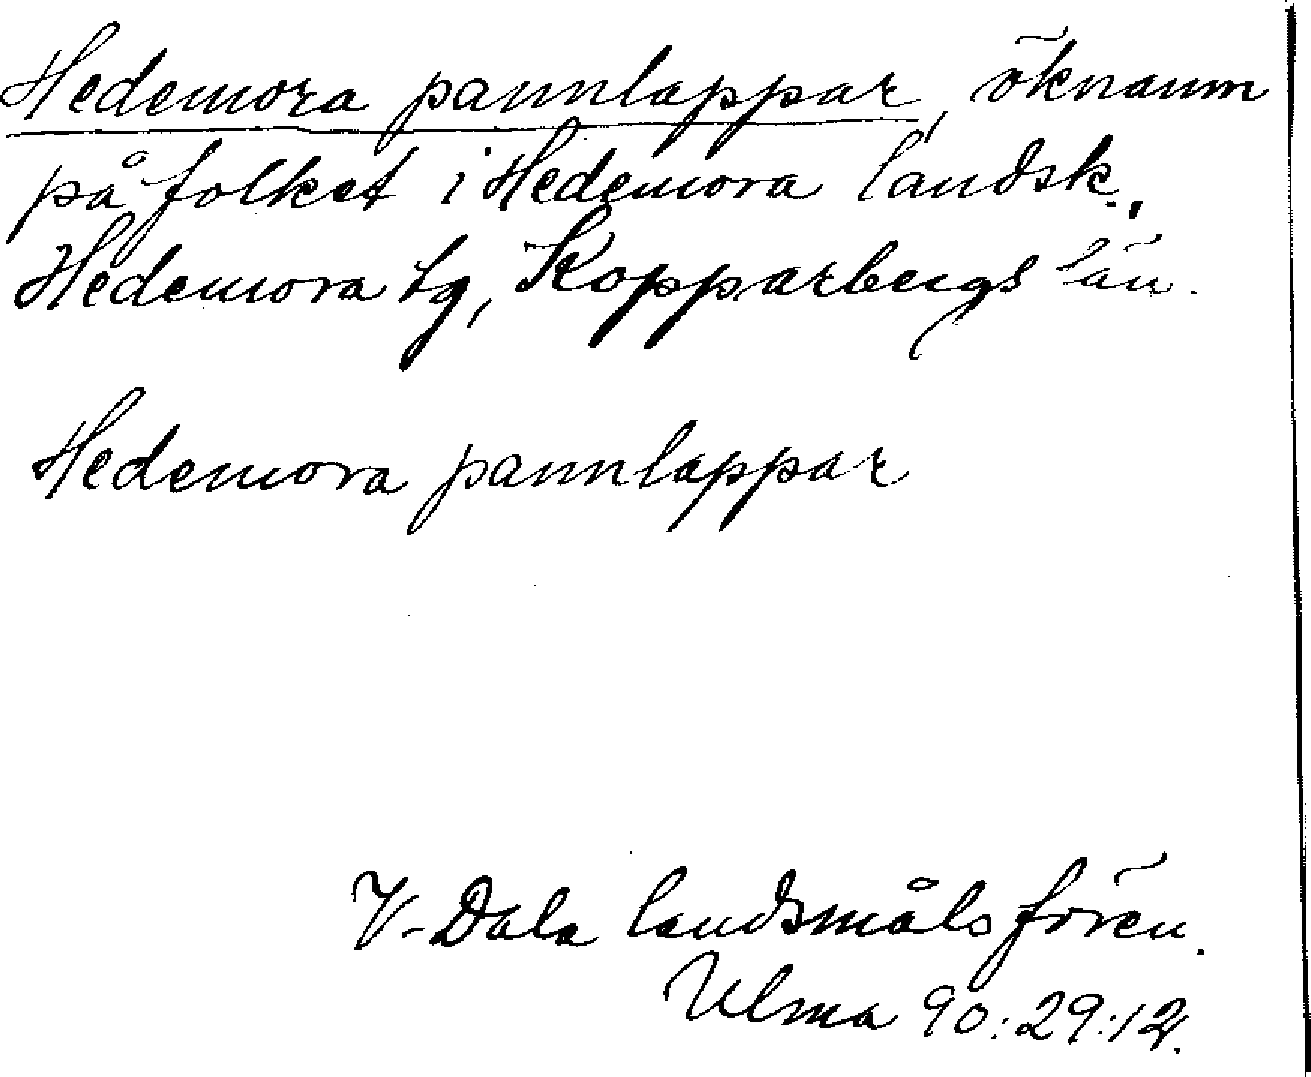 Hedemora pannlappar, öknamn
på folket i Hedemora landsk.,
Hedemora tg, Kopparbergs län.
Hedemora pannlappar
V-Dala landsmålsfören.
Ulma 90:29:12.